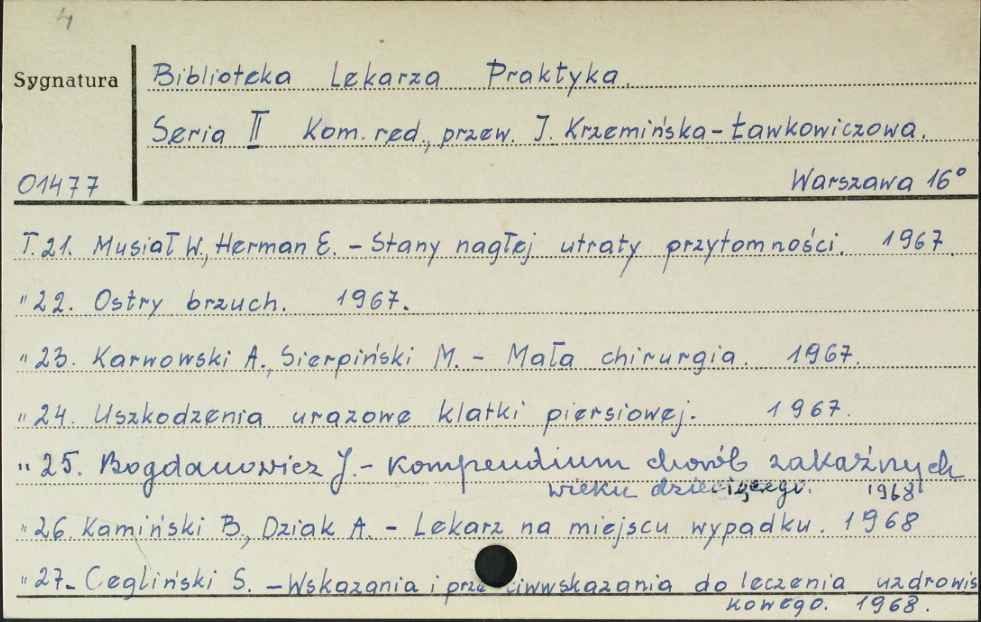 4
Sygnatura Biblioteka Lekarza Praktyka.
Seria II Kom. red., przew. J. Krzemińska-Ławkowiczowa.
01477 Warszawa 16°
T.21. Musiał W., Herman E. - Stany nagłej utraty przytomności. 1967
"22. Ostry brzuch. 1967.
"23. Karwowski A., Sierpiński M. - Mała chirurgia. 1967.
"24. Uszkodzenia urazowe klatki piersiowej. 1967.
"25. Bogdanowicz J. - Kompendium chorób zakaźnych
wieku dziecięcego. 1968
"26. Kamiński B., Dziak A. - Lekarz na miejscu wypadku. 1968
"27- Cegliński S. - Wskazania i prze ciwwskazania do leczenia uzdrowis
kowego. 1968.